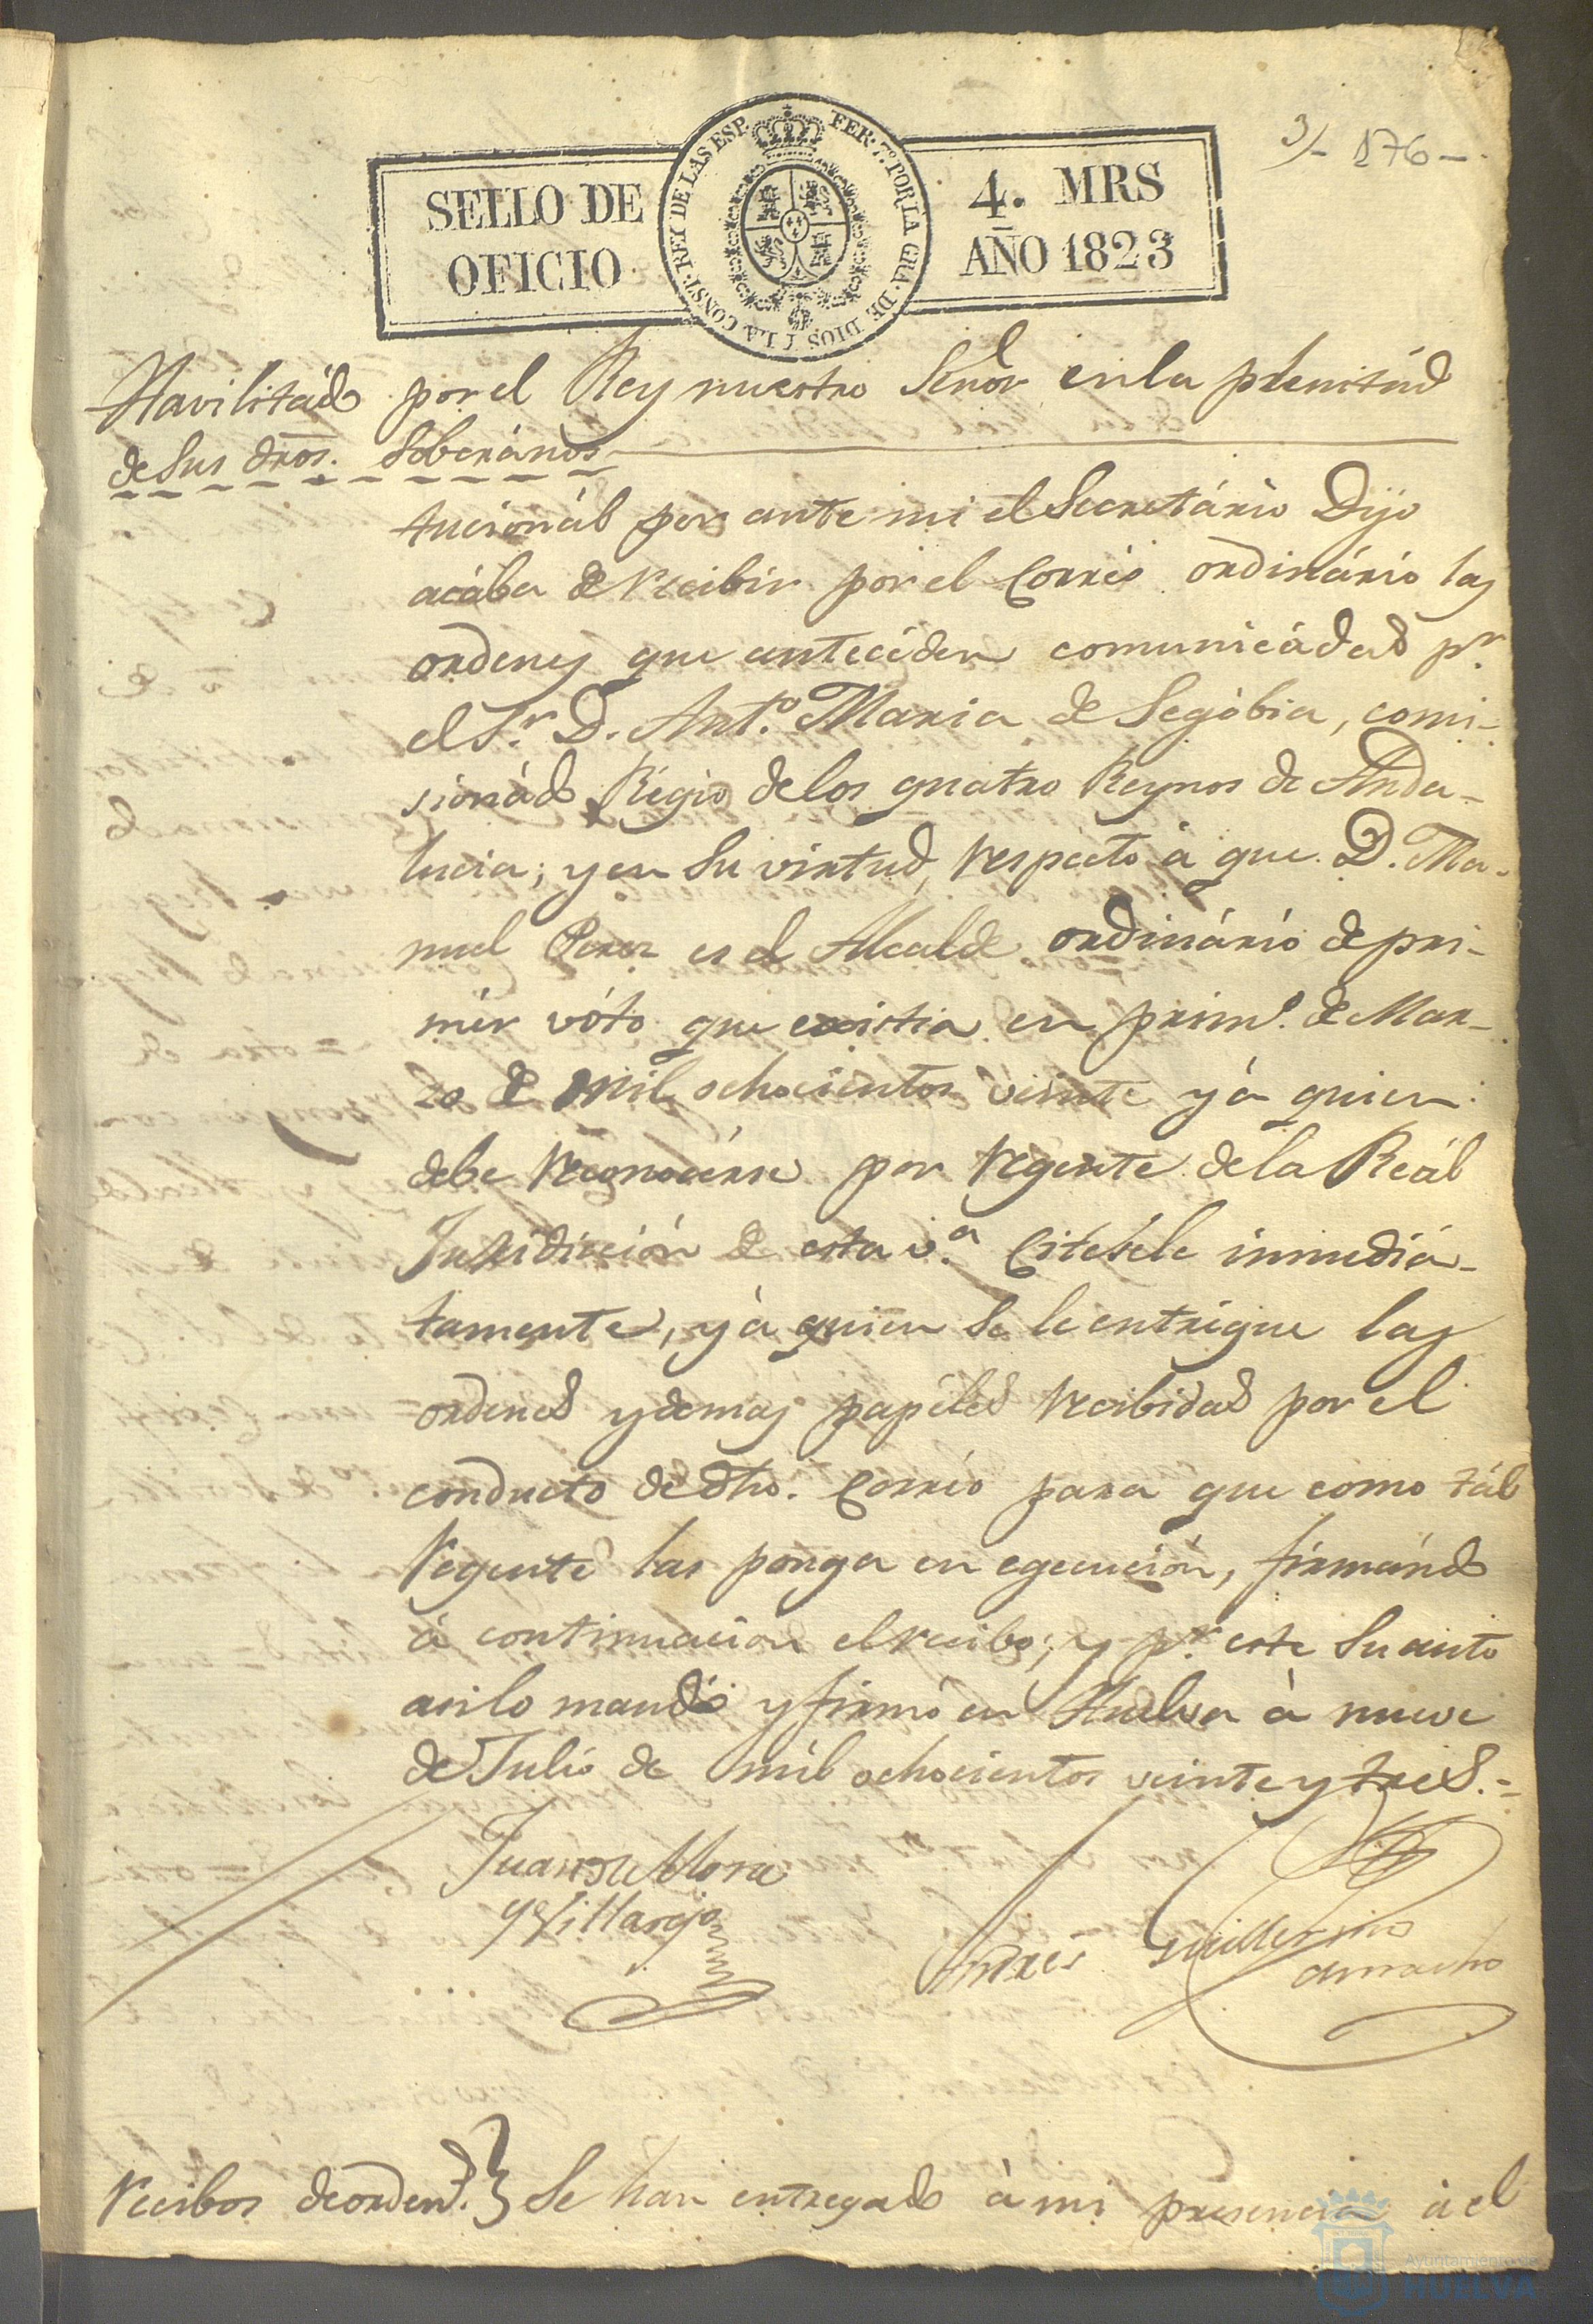 3/- 176-
SELLO DE
OFICIO
FER. 7º POR LA GRA. DE DIOS I LA CONST. REY DE LAS ESP.
4. MRS
AÑO 1823
Havilitádo por el Rey nuestro Señor en la plenitúd
de Sus dros. Soberános
tucionál por ante mi el Secretário Dijo
acába de recibir por el Corréo ordinário las
ordenes que antecéden comunicádas pr.
el Sr. D. Antº. Maria de Segóbia, comi-
sionádo Régio de los quatro Reynos de Anda-
lucia; y en Su virtud, respecto à que D. Ma-
nuel Perez es el Alcalde ordinário de pri-
mér vóto que existia en primº. de Mar-
zo de mil ochocientos veinte y à quien
debe reconocérse por regente de la Reál
Jurisdicción de esta vª. Citesele inmediá-
tamente, y à quien Se le entrégue las
ordenes y demas papéles recibidas por el
conducto de dho. Corréo para que como tál
regente las ponga en egecución, firmándo
à continuacion el recibo; y pr. este Su auto
asi lo mandó y firmó en Huelva à nueve
de Julio de mil ochocientos veinte y tres.=
Juan de Mora
y Villarejo
Andrés Guillermo
Camacho
Recibos de orden.s } Se han entregado à mi presencia à el
Ayuntamiento de
HUELVA